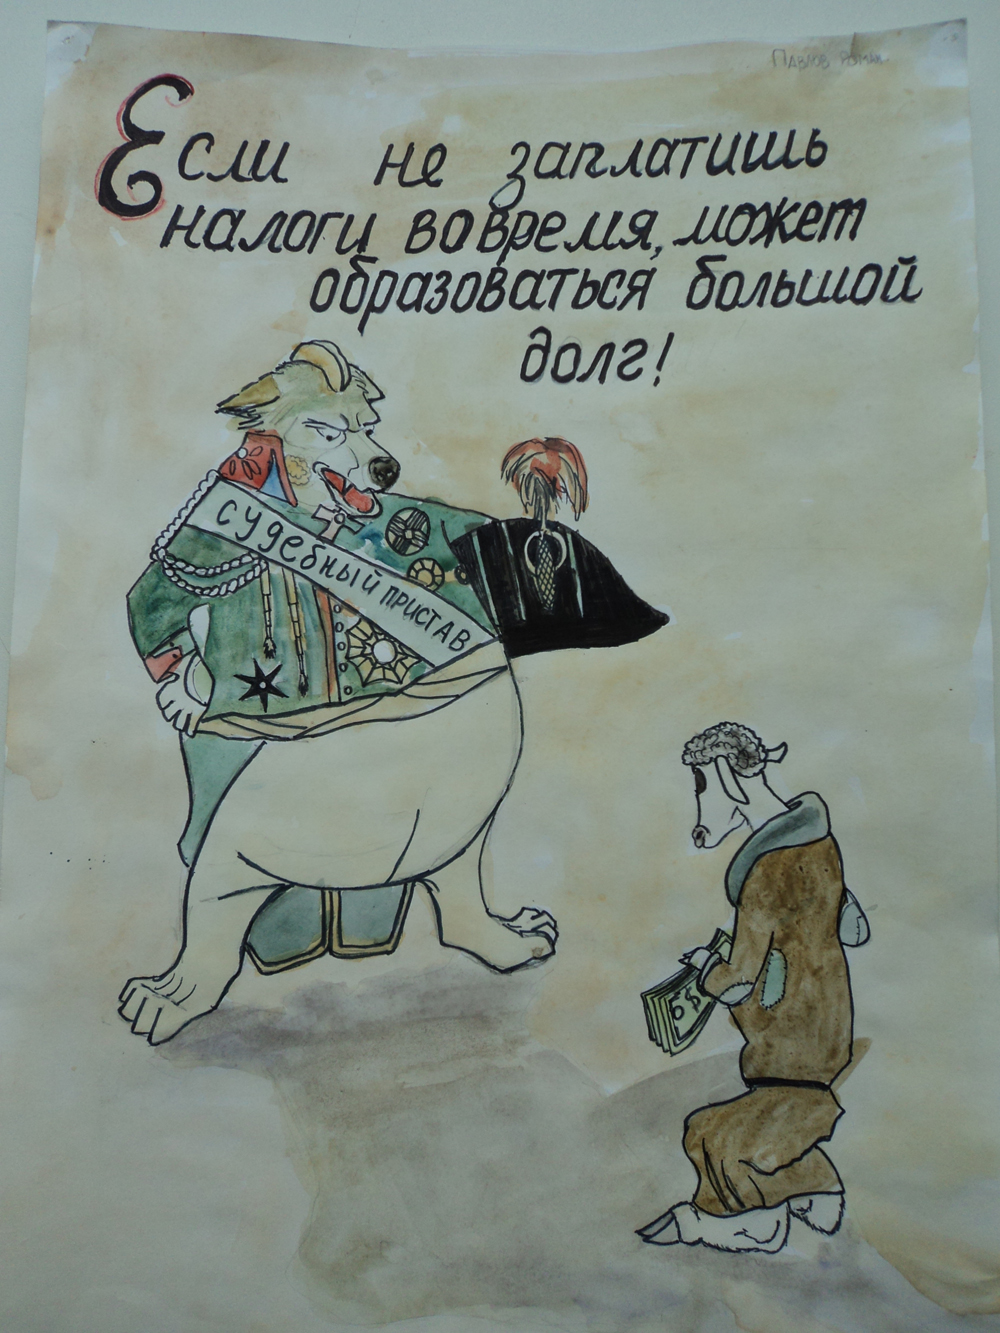 Павлов Роман
Если не заплатишь
налоги вовремя, может
образоваться большой
долг!
судебный пристав
5$